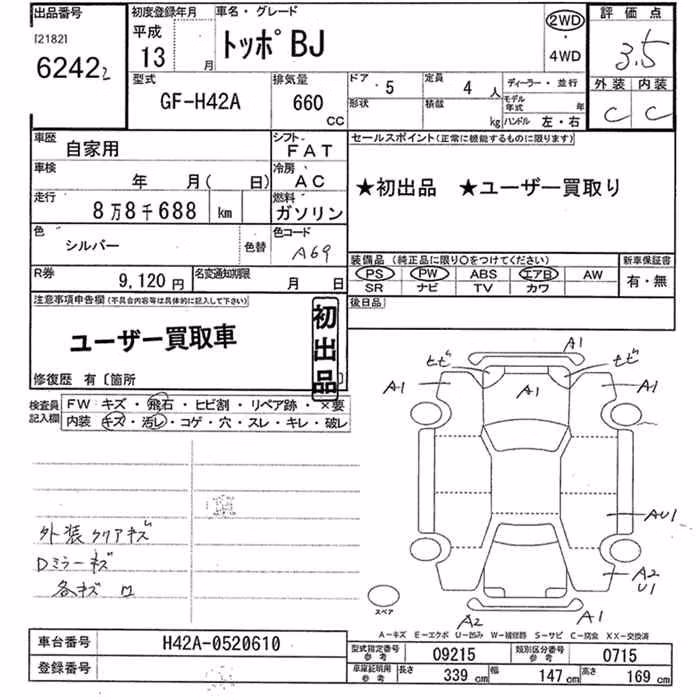 出品番号 初度登録年月 車名・グレード 評価点
[2182] 平成 13 月 トッポBJ 2WD ・ 4WD 3.5
6242
型式 排気量 ドア 5 定員 4 人 ディーラー・並行 外装 内装
GF-H42A 660 CC 形状 積載 kg モデル年式 年 C C
ハンドル 左・右
車歴 自家用 シフト FAT セールスポイント(正常に機能するものに限ります)
車検 年 月( 日) 冷房 AC ★初出品 ★ユーザー買取り
走行 8万8千688 km 燃料 ガソリン
色 シルバー 色替 色コード A69
装備品 (純正品に限り○をつけてください) 新車保証書
R券 9,120円 名変通知期限 月 日 PS PW ABS エアB AW 有・無
SR ナビ TV カワ
注意事項申告欄(不具合内容等は具体的に記入して下さい) 後日品
ユーザー買取車 初出品
修復歴 有〔箇所
検査員記入欄 FW キズ・飛石・ヒビ割・リペア跡・×要
内装 キズ・汚レ・コゲ・穴・スレ・キレ・破レ
A1
ヒビ ヒビ
A1 A1 A1
AU1
外装クリアキズ
Dミラーキズ
各キズ ロ
A2
U1
スペア
A2 A1
A-キズ E-エクボ U-凹み W-補修跡 S-サビ C-腐食 XX-交換済
車台番号 H42A-0520610 型式指定番号 参考 09215 類別区分番号 参考 0715
登録番号 車庫証明用 参考 長さ 339 cm 幅 147 cm 高さ 169 cm